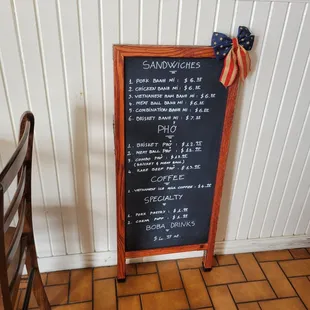 SANDWICHES
1. PORK BANH MI : $ 6.25
2. CHICKEN BANH MI : $ 6.25
3. VIETNAMESE HAM BANH MI : $ 6.25
4. MEAT BALL BANH MI : $ 6.25
5. COMBINATION BANH MI : $ 6.25
6. BRISKET BANH MI : $ 7.25
PHỞ
1. BRISKET PHỞ : $
2. MEAT BALL PHỞ : $
3. COMBO PHỞ : $
(BRISKET & MEAT BALL)
4. RARE BEEF PHỞ : $
COFFEE
VIETNAMESE ICE MILK COFFEE : $
SPECIALTY
1. PORK PASTRY : $
2. CREAM PUFF : $
BOBA DRINKS
$